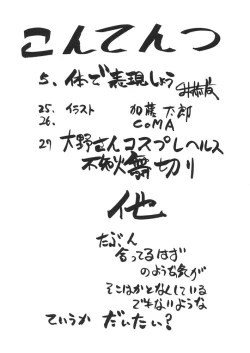 こんてんつ
5. 体で表現しよう
25. イラスト 加藤太郎
26. COMA
29 大野さんコスプレヘルス
不知火舞切り
他
たぶん
合ってるはず
のような気が
そこはかとなくしている
でもないような
ていうか だいたい?